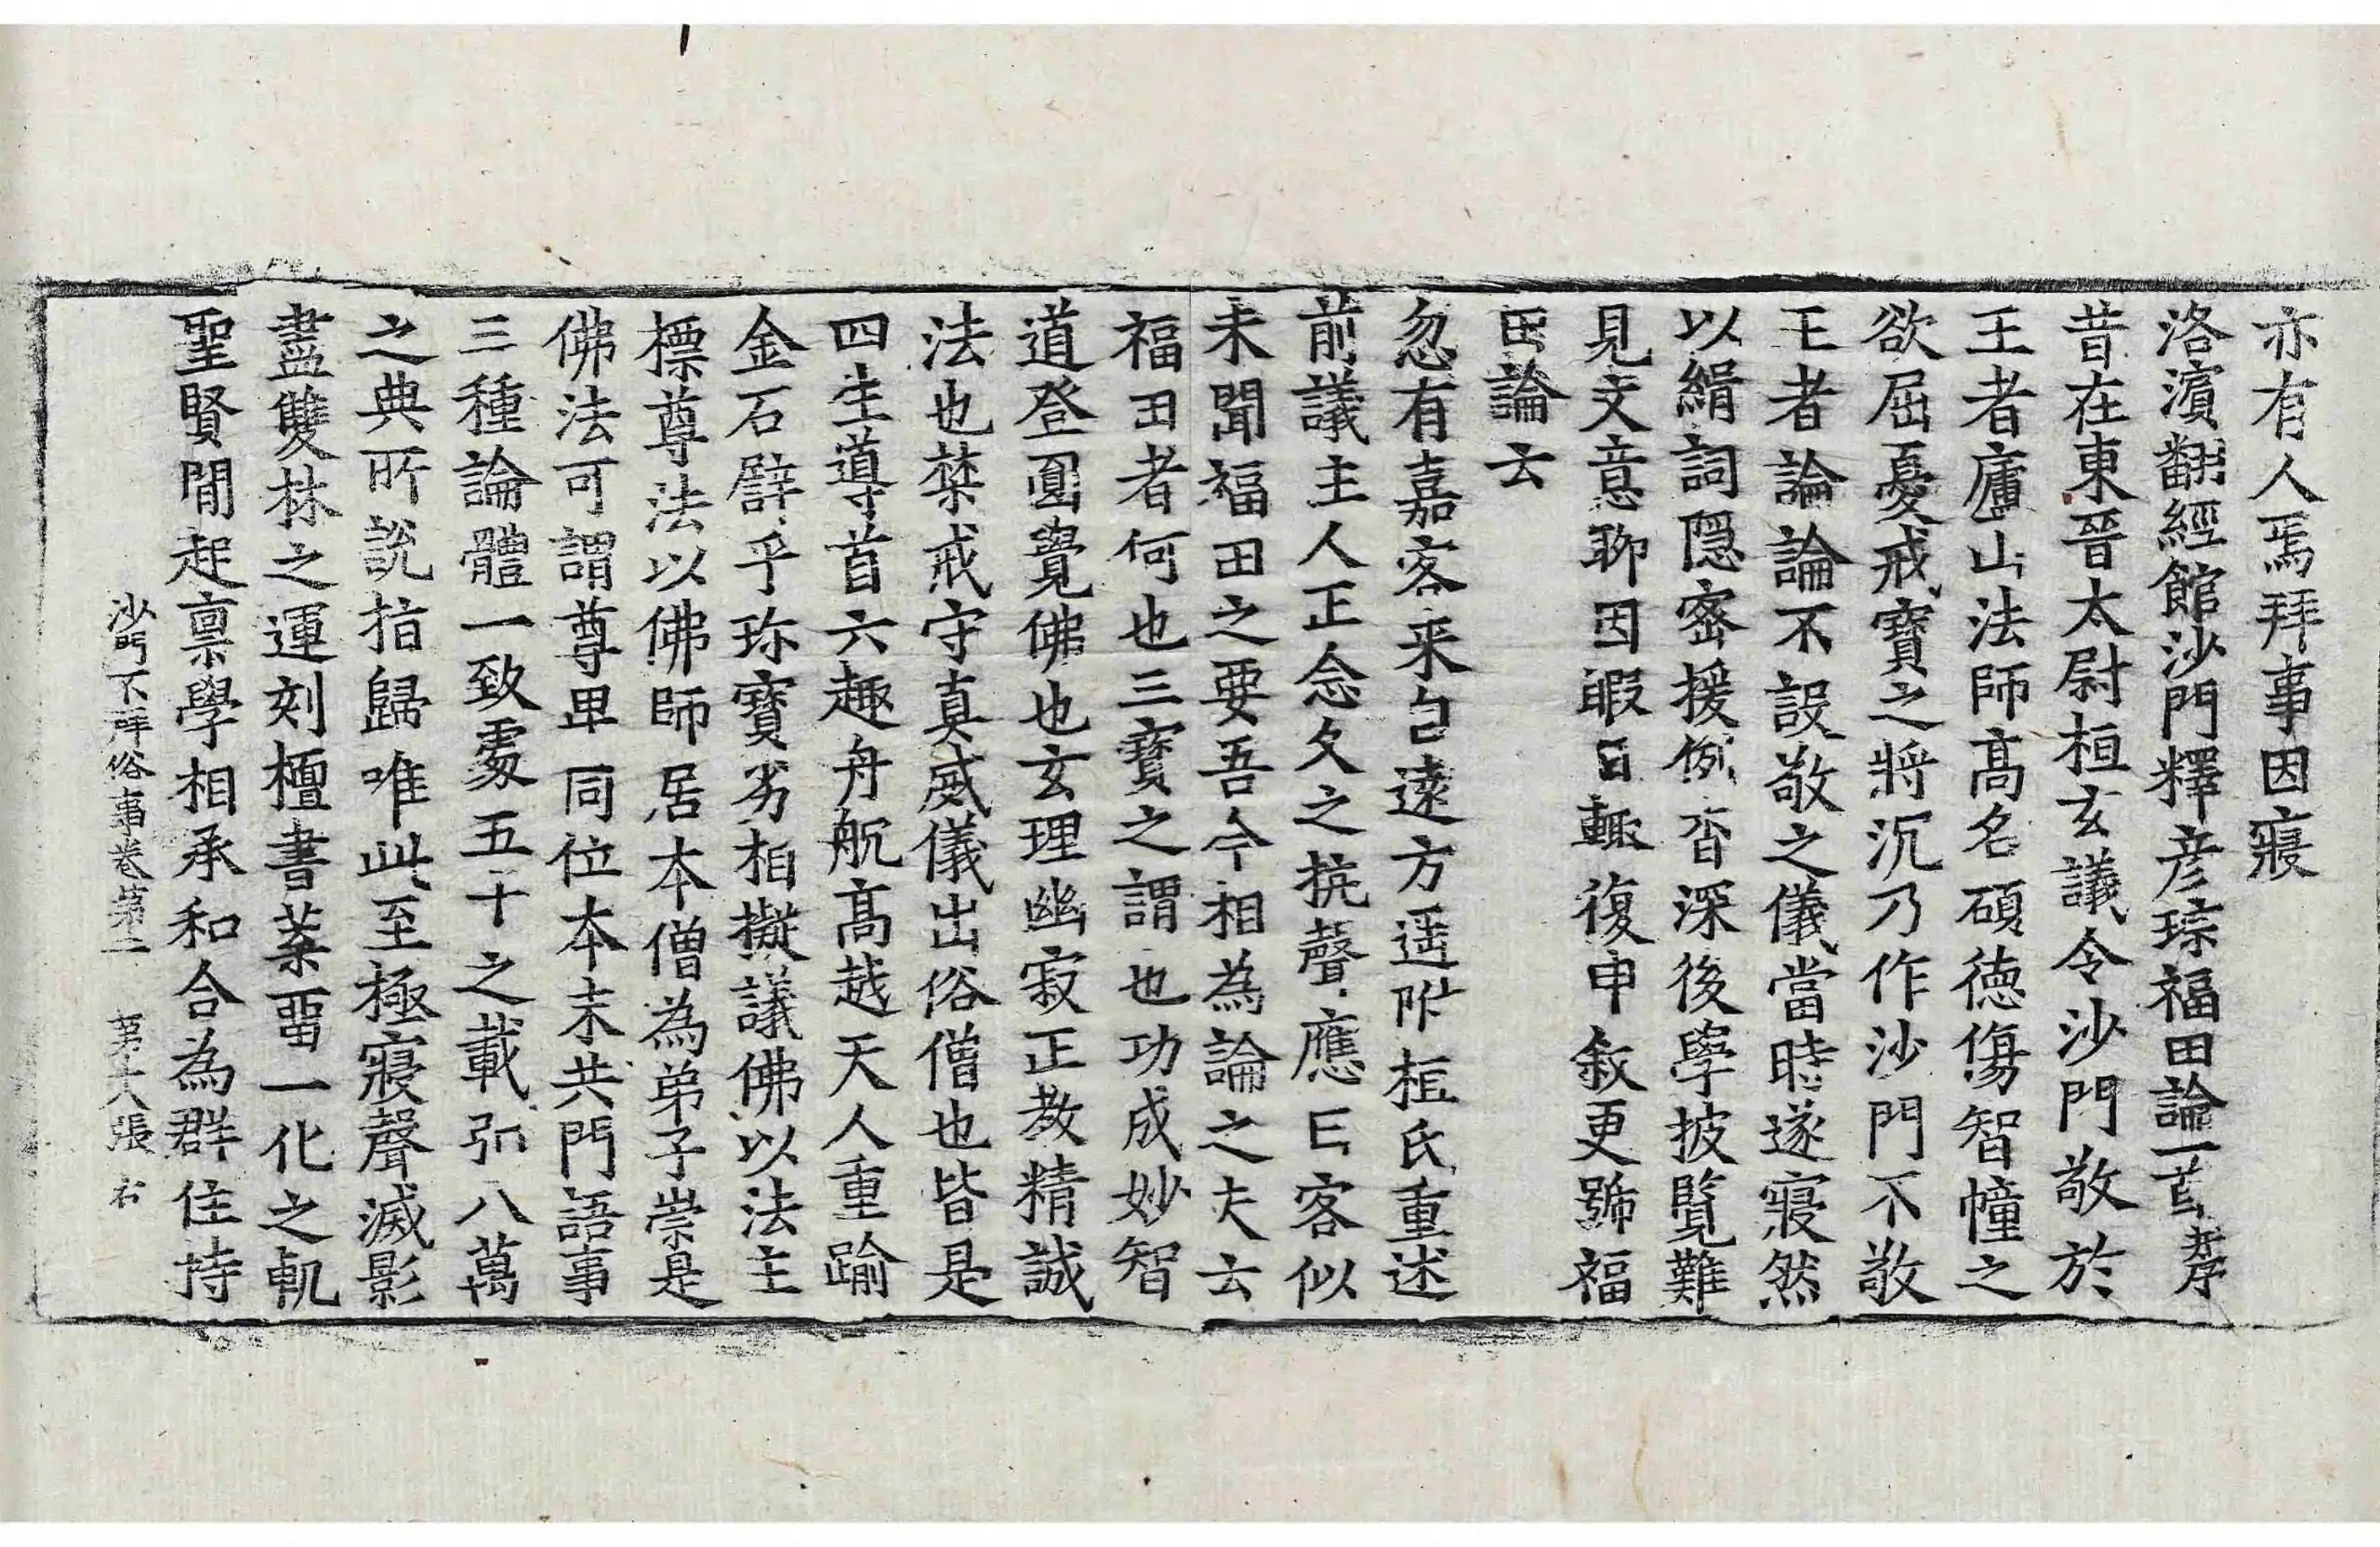 亦有人焉拜事因寢
洛濱翻經館沙門釋彦琮福田論一首并序
昔在東晉太尉桓玄議令沙門敬於
王者廬山法師高名碩徳傷智幢之
欲屈憂戒寶之將沉乃作沙門不敬
王者論論不設敬之儀當時遂寢然
以緝詞隱密援例杳深後學披覽難
見文意聊因暇日輒復申叙更號福
田論云
忽有嘉客来自遠方遥附桓氏重述
前議主人正念久之抗聲應曰客似
未聞福田之要吾今相為論之夫云
福田者何也三寶之謂也功成妙智
道登圓覺佛也玄理幽寂正教精誠
法也禁戒守真威儀出俗僧也皆是
四生導首六趣舟航高越天人重踰
金石譬乎珎寶劣相擬議佛以法主
標尊法以佛師居本僧為弟子崇是
佛法可謂尊卑同位本末共門語事
三種論體一致處五十之載弘八萬
之典所說指歸唯此至極寢聲滅影
盡雙林之運刻檀書葉留一化之軌
聖賢閒起稟學相承和合為群住持
沙門不拜俗事卷第二 第十八張 右